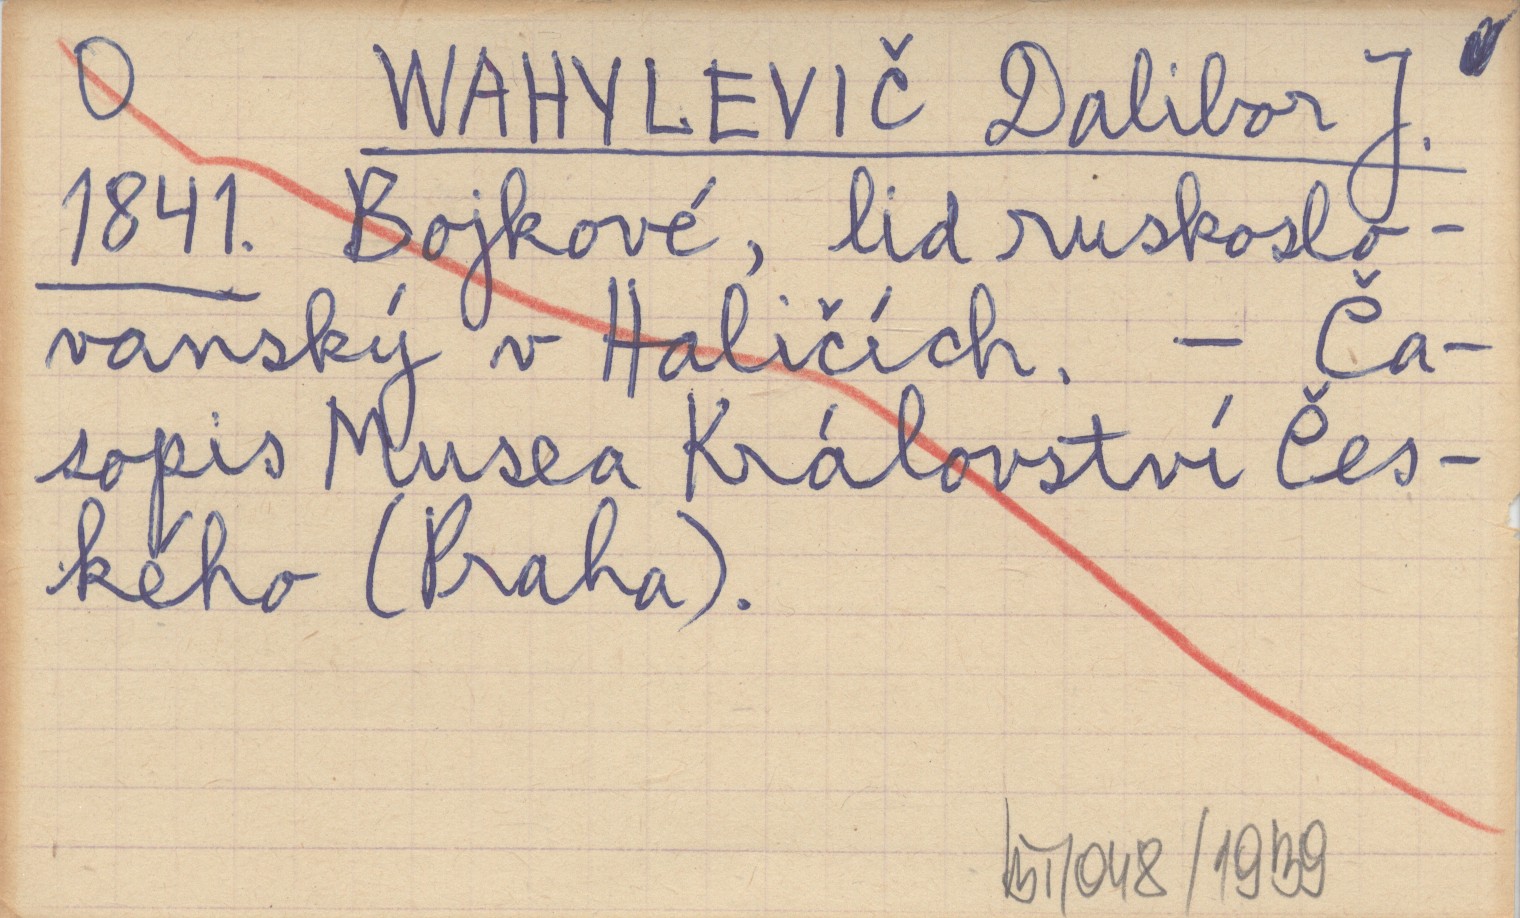 O WAHYLEVIČ Dalibor J.
1841. Bojkové, lid ruskoslo-
vanský v Haličích. - Ča-
sopis Musea Království Čes-
kého (Praha).
/048/1939